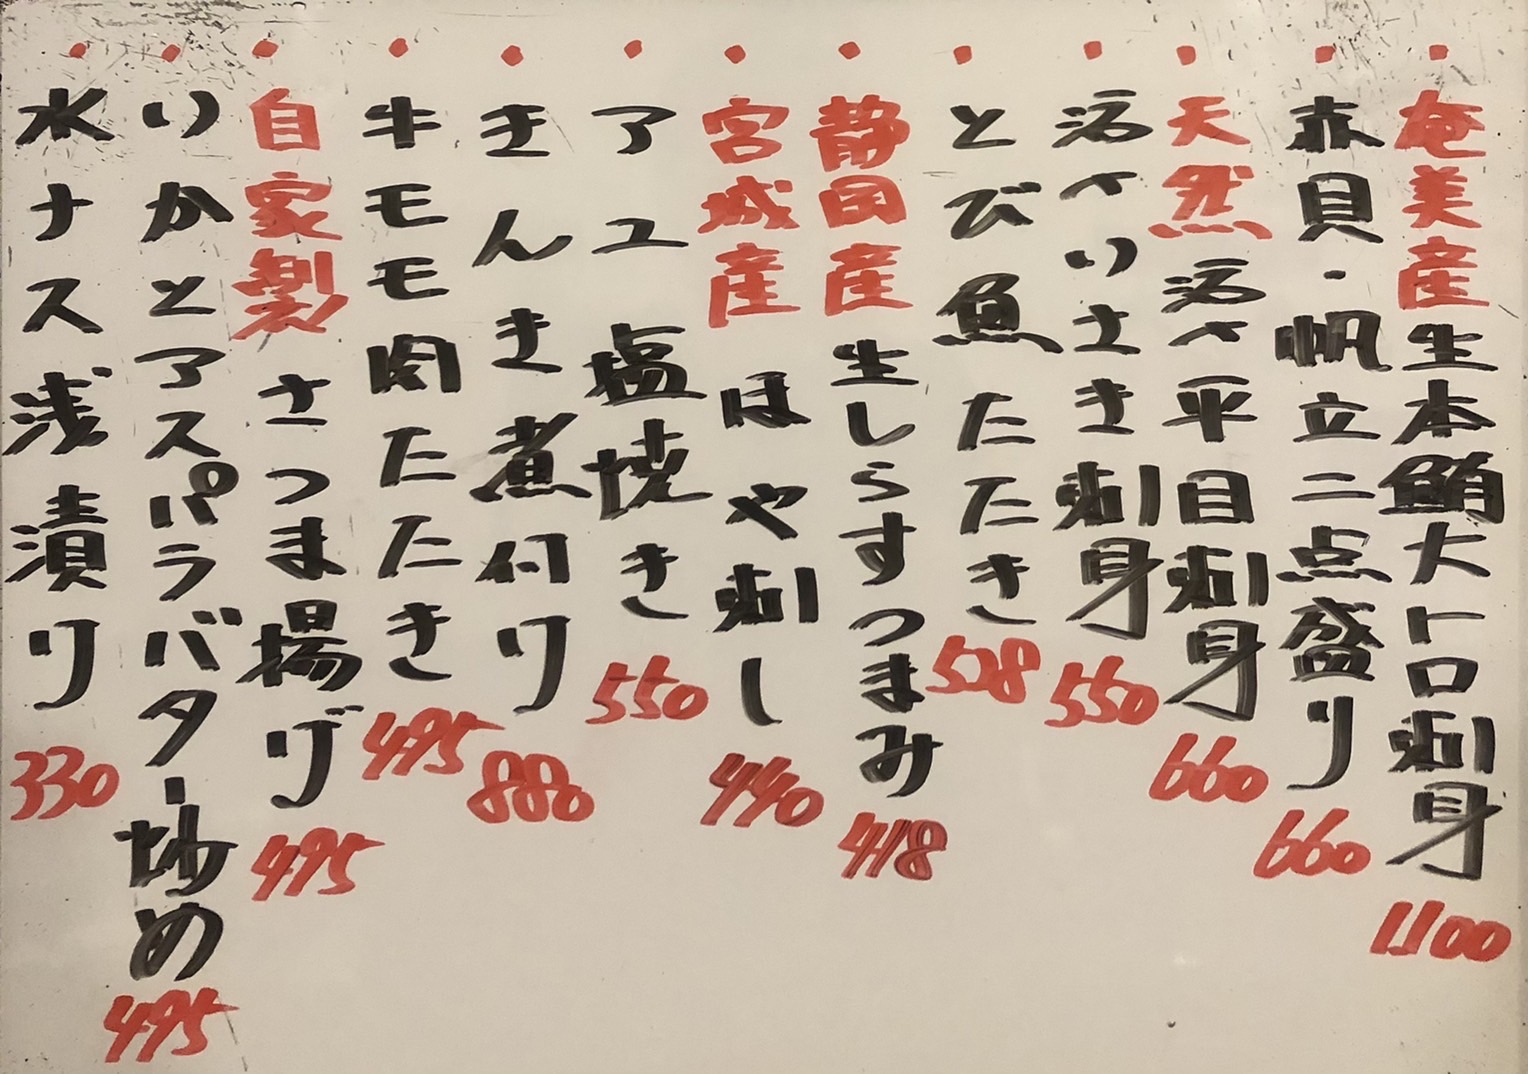 ・奄美産生本鮪大トロ刺身 1100
・赤貝・帆立二点盛り 660
・天然活〆平目刺身 660
・活〆いさき刺身 550
・とび魚たたき 528
・静岡産生しらすつまみ 418
・宮城産ほや刺し 440
・アユ塩焼き 550
・きんき煮付り 880
・牛モモ肉たたき 495
・自家製さつま揚げ 495
・いかとアスパラバター炒め 495
・水ナス浅漬り 330